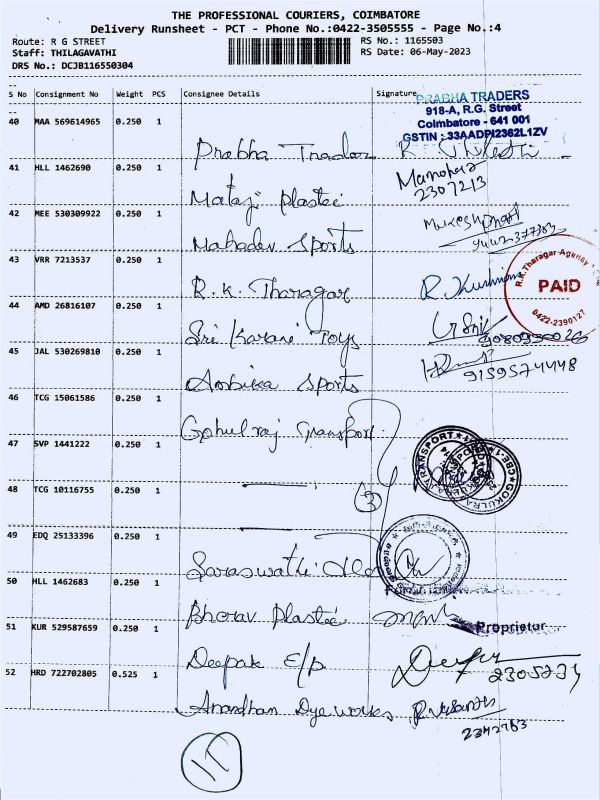 THE PROFESSIONAL COURIERS, COIMBATORE
Delivery Runsheet - PCT - Phone No.:0422-3505555 - Page No.:4
Route: R G STREET
RS No.: 1165503
Staff: THILAGAVATHI
RS Date: 06-May-2023
DRS No.: DCJB116550304
S No Consignment No Weight PCS Consignee Details Signature
PRABHA TRADERS
918-A, R.G. Street
Coimbatore - 641 001
GSTIN : 33AADPI2362L1ZV
40 MAA 569614965 0.250 1
Prabha Traders
41 HLL 1462690 0.250 1
Manohar
2307213
Mataji Plastic
42 MEE 530309922 0.250 1
Mukesh
Mahadev Sports
43 VRR 7213537 0.250 1
R.K. Tharagar
R.K.Tharagar Agency
PAID
0422-2390127
44 AMD 26816107 0.250 1
Sri Karani Toys
45 JAL 530269810 0.250 1
9159574448
Ambika Sports
46 TCG 15061586 0.250 1
Gohulraj Transport
47 SVP 1441222 0.250 1
48 TCG 10116755 0.250 1
3
49 EDQ 25133396 0.250 1
Saraswathi
50 HLL 1462683 0.250 1
Bhorav Plastic
Proprietor
51 KUR 529587659 0.250 1
Deepak E/p
2305234
52 HRD 722702805 0.525 1
Anandhan Dye works
2342763
17